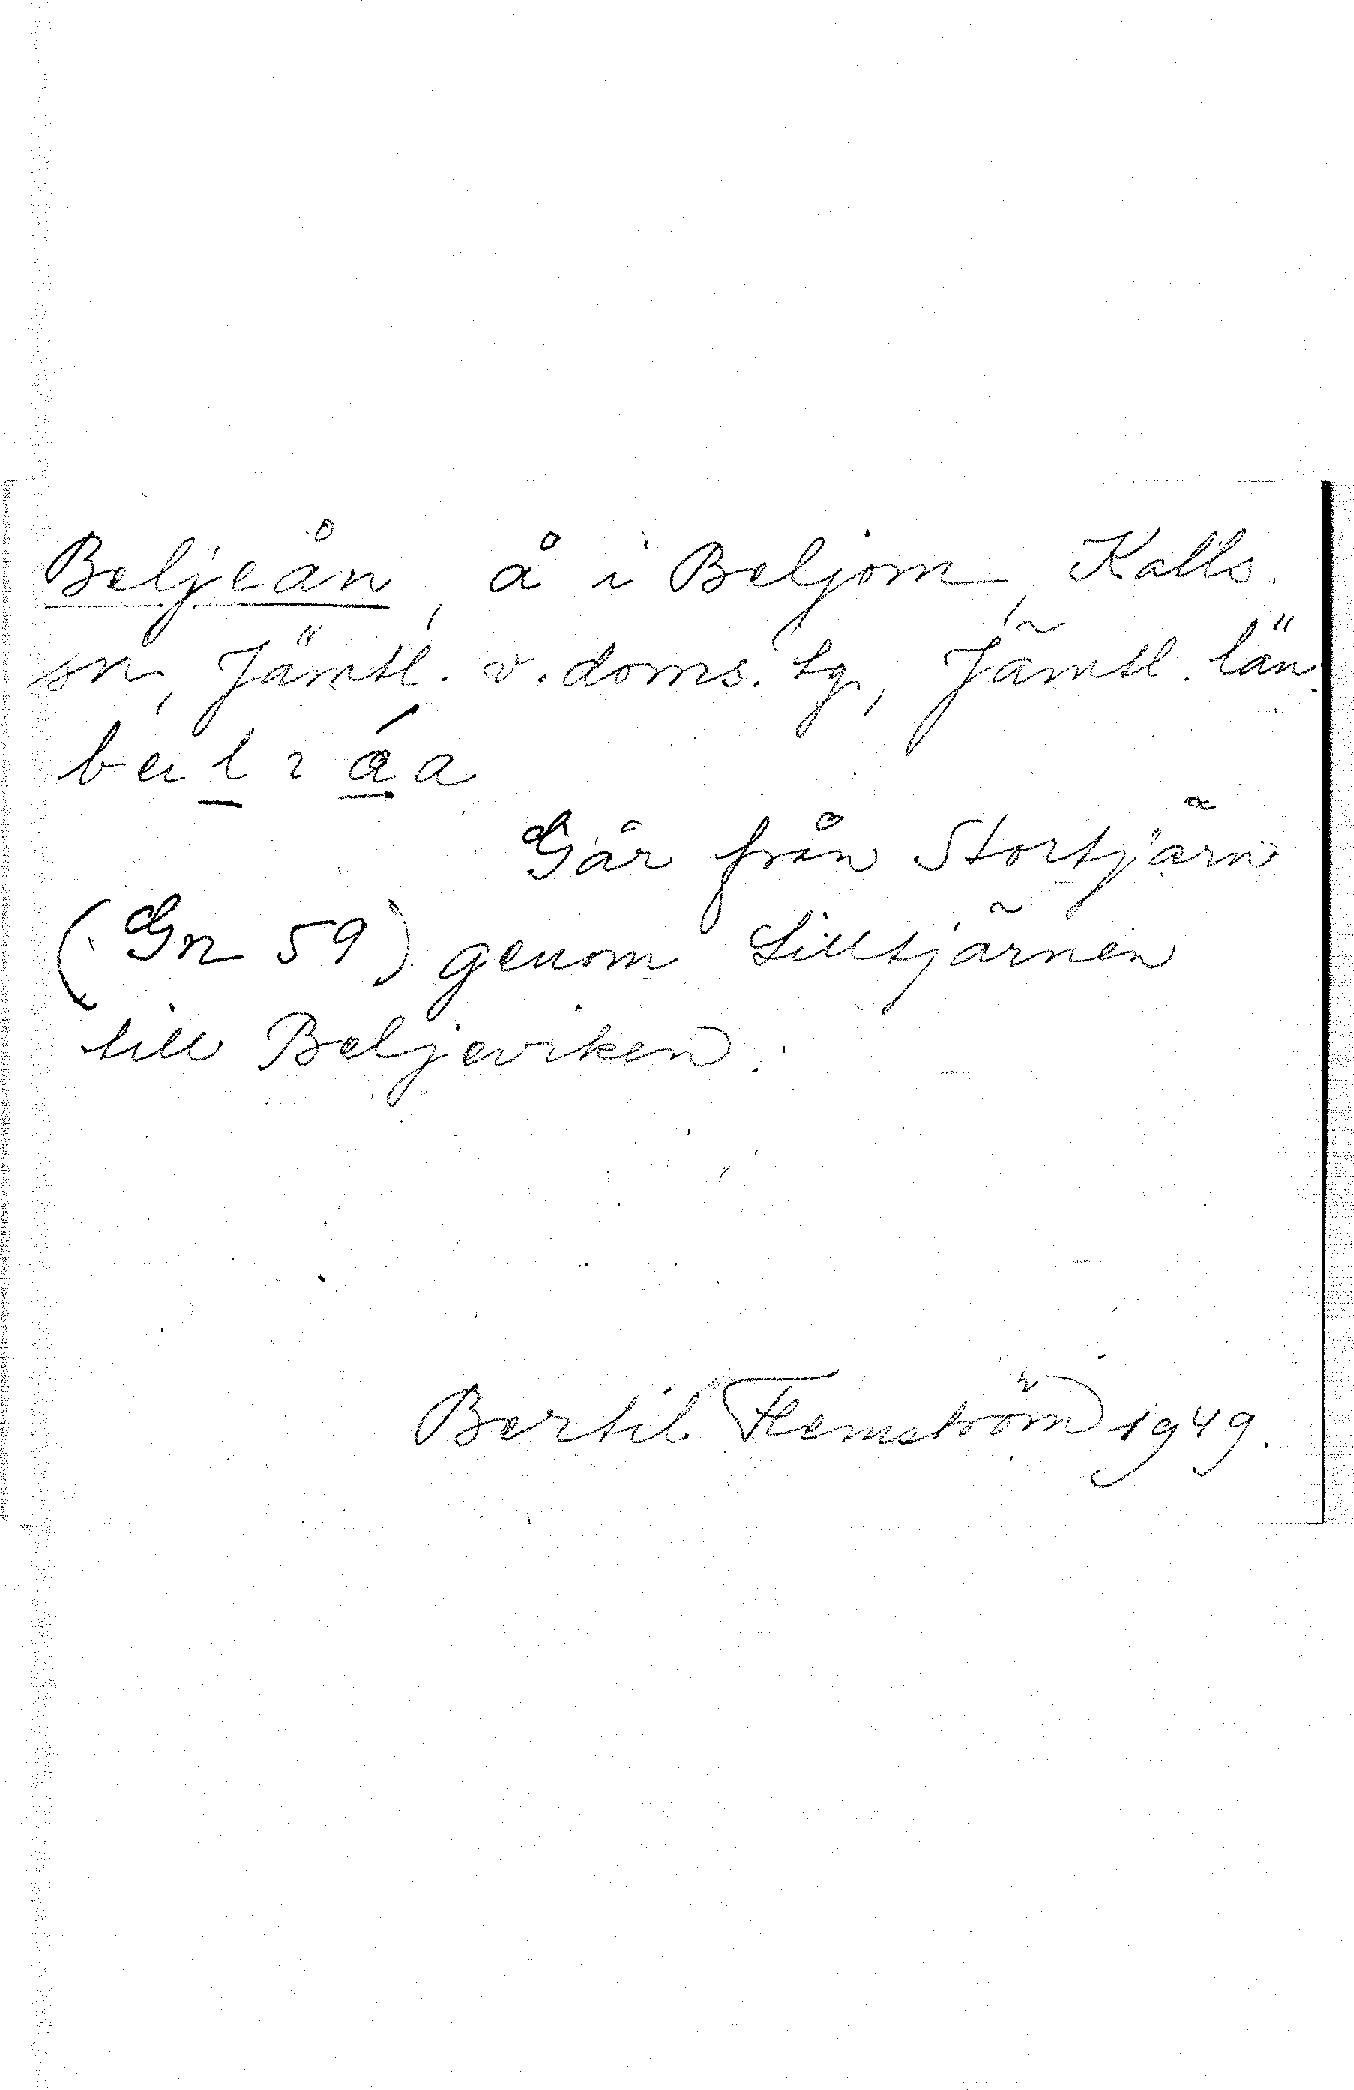 Beljeån, å i Beljom, Kalls
sn, Jämtl. v. doms. tg, Jämtl. län.
Går från Stortjärn
(Gn 59) genom Lilltjärnen
till Beljeviken.
Bertil Flemström 1949.